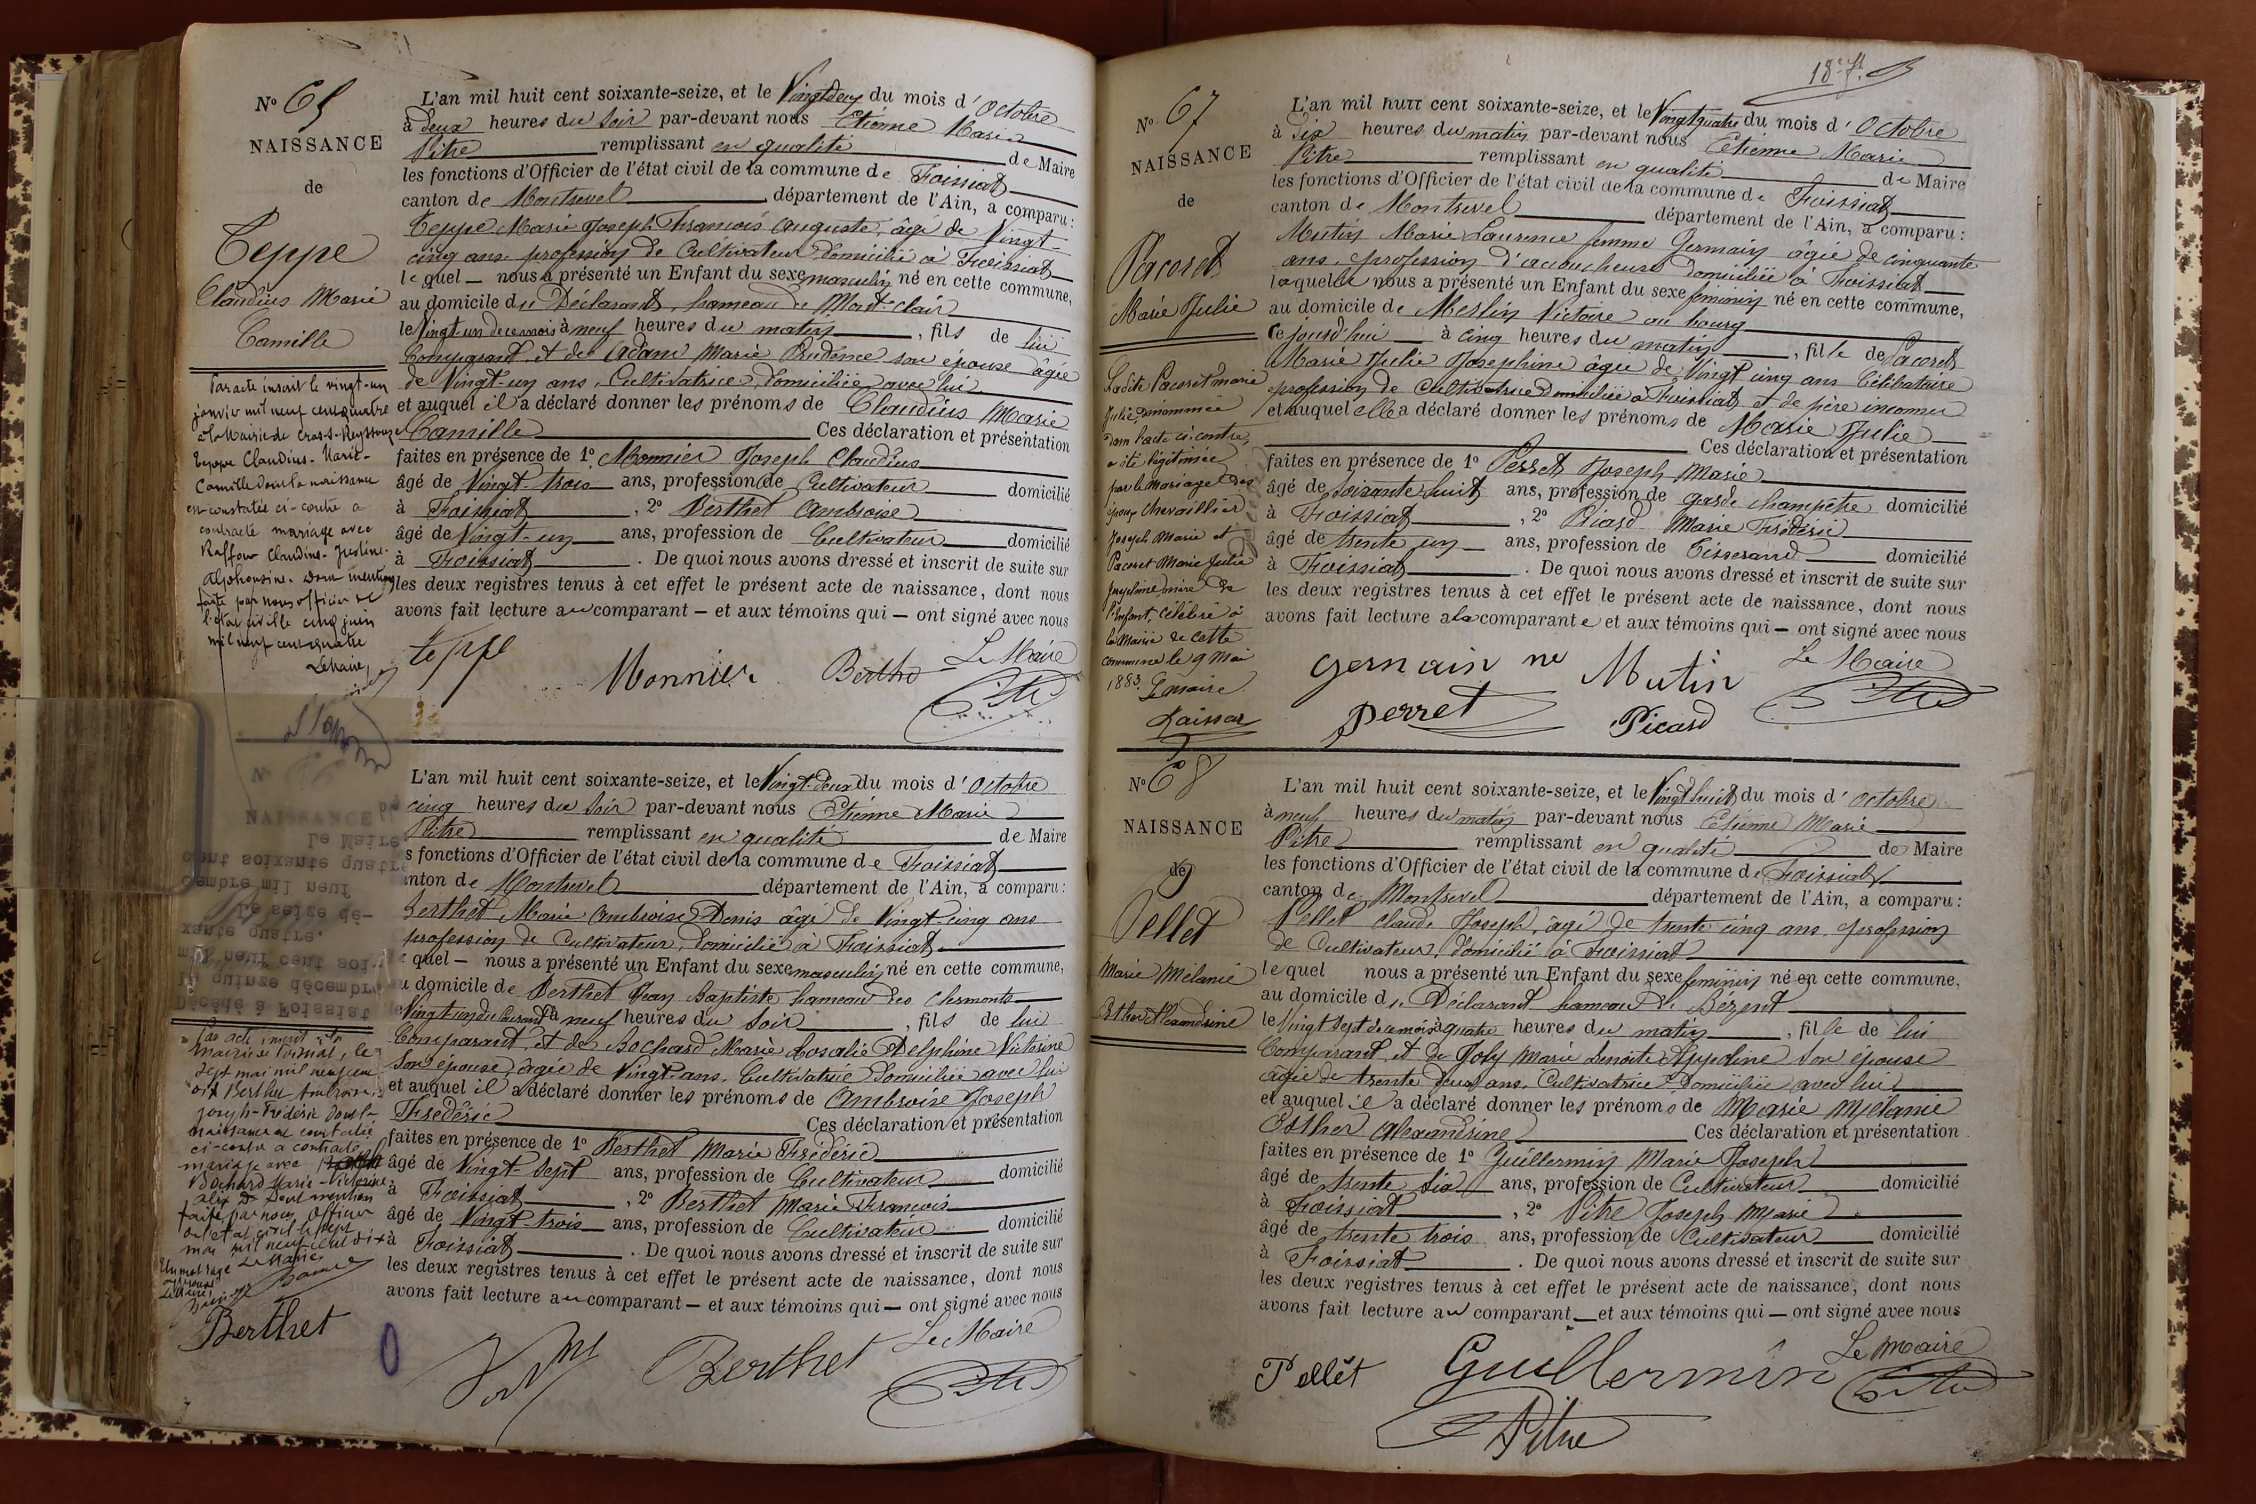 N° 65
NAISSANCE
de
Teppe
Claudius Marie
Camille
Par acte inscrit le vingt-un
janvier mil neuf cent quatre
à la Mairie de Cras-s-Reyssouze
Teppe Claudius-Marie-
Camille dont la naissance
est constatée ci-contre a
contracté mariage avec
Raffour Claudius-Justine-
Alphonsine. Dont mention
faite par nous officier de
l'état civil le cinq juin
mil neuf cent quatre
Le Maire,
L'an mil huit cent soixante-seize, et le Vingt deux du mois d'Octobre
à deux heures du soir par-devant nous Etienne Marie
Pitre remplissant en qualité de Maire
les fonctions d'Officier de l'état civil de la commune de Foissiat
canton de Montrevel département de l'Ain, a comparu:
Teppe Marie Joseph François Auguste, âgé de Vingt-
cinq ans profession de Cultivateur domicilié à Foissiat
lequel — nous a présenté un Enfant du sexe masculin né en cette commune,
au domicile du Déclarant, hameau de Mont-clair
le Vingt-un de ce mois à neuf heures du matin, fils de lui
Comparant et de Adam Marie Prudence son épouse âgée
de Vingt-un ans, Cultivatrice domiciliée avec lui
et auquel il a déclaré donner les prénoms de Claudius Marie
Camille Ces déclaration et présentation
faites en présence de 1° Monnier Joseph Claudius
âgé de Vingt-trois ans, profession de Cultivateur domicilié
à Foissiat, 2° Berthet Ambroise
âgé de Vingt-un ans, profession de Cultivateur domicilié
à Foissiat. De quoi nous avons dressé et inscrit de suite sur
les deux registres tenus à cet effet le présent acte de naissance, dont nous
avons fait lecture au comparant — et aux témoins qui — ont signé avec nous
teppe Monnier Le Maire
Pitre
N°
NAISSANCE
Le Maire
cent soixante quatre
cembre mil neuf
Le seize dé-
xante quatre.
mil neuf cent soi
le quinze décembre
Décédé à Foissiat
mairie de Foissiat, le
sept mai mil neuf cent
dix Berthet Ambroise
Joseph-Frédéric dont la
naissance est constatée
ci-contre a contracté
mariage avec
Bochard Marie-Victorine
Alix. Dont mention
faite par nous officier
de l'état civil le sept
mai mil neuf cent dix
Le Maire
Un mot rayé
Berthet
L'an mil huit cent soixante-seize, et le Vingt-deux du mois d'Octobre
cinq heures du soir par-devant nous Etienne Marie
Pitre remplissant en qualité de Maire
s fonctions d'Officier de l'état civil de la commune de Foissiat
nton de Montrevel département de l'Ain, a comparu:
Berthet Marie Ambroise Denis âgé de Vingt cinq ans
profession de Cultivateur, domicilié à Foissiat
quel — nous a présenté un Enfant du sexe masculin né en cette commune,
u domicile de Berthet Jean Baptiste hameau des Chermonts
Vingt-un du courant à neuf heures du soir, fils de lui
Comparant et de Bochard Marie Rosalie Delphine Victorine
son épouse, âgée de Vingt ans, Cultivatrice domiciliée avec lui
et auquel il a déclaré donner les prénoms de Ambroise Joseph
Frédéric Ces déclaration et présentation
faites en présence de 1° Berthet Marie Frédéric
âgé de Vingt-sept ans, profession de Cultivateur domicilié
à Foissiat, 2° Berthet Marie François
âgé de Vingt-trois ans, profession de Cultivateur domicilié
à Foissiat. De quoi nous avons dressé et inscrit de suite sur
les deux registres tenus à cet effet le présent acte de naissance, dont nous
avons fait lecture au comparant — et aux témoins qui — ont signé avec nous
Berthet Le Maire
Pitre
18e f.
N° 67
NAISSANCE
de
Pacoret
Marie Julie
Ladite Pacoret Marie
Julie, dénommée
dans l'acte ci-contre,
a été légitimée
par le mariage des
époux Chevaillier
Joseph Marie et
Pacoret Marie Julie
Joséphine mère de
l'enfant, célébré à
la Mairie de cette
commune le 9 Mai
1883. Le maire
L'an mil huit cent soixante-seize, et le Vingt quatre du mois d'Octobre
à six heures du matin par-devant nous Etienne Marie
Pitre remplissant en qualité de Maire
les fonctions d'Officier de l'état civil de la commune de Foissiat
canton de Montrevel département de l'Ain, a comparu:
Mutin Marie Laurence femme Germain âgée de cinquante
ans, profession d'accoucheuse domiciliée à Foissiat
laquelle nous a présenté un Enfant du sexe féminin né en cette commune,
au domicile de Merlin Victoire au bourg
ce jourd'hui à cinq heures du matin, fille de Pacoret
Marie Julie Josephine âgée de Vingt cinq ans Célibataire
profession de cultivatrice domiciliée à Foissiat, et de père inconnu
et auquel elle a déclaré donner les prénoms de Marie Julie
Ces déclaration et présentation
faites en présence de 1° Perret Joseph Marie
âgé de soixante huit ans, profession de garde champêtre domicilié
à Foissiat, 2° Picard Marie Frédéric
âgé de trente un ans, profession de Tisserand domicilié
à Foissiat. De quoi nous avons dressé et inscrit de suite sur
les deux registres tenus à cet effet le présent acte de naissance, dont nous
avons fait lecture à la comparante et aux témoins qui — ont signé avec nous
germain ne Mutin Le Maire
Perret Picard Pitre
N° 68
NAISSANCE
de
Pellet
Marie Mélanie
Esther Alexandrine
L'an mil huit cent soixante-seize, et le Vingt huit du mois d'Octobre
à neuf heures du matin par-devant nous Etienne Marie
Pitre remplissant en qualité de Maire
les fonctions d'Officier de l'état civil de la commune de Foissiat
canton de Montrevel département de l'Ain, a comparu:
Pellet Claude Joseph, âgé de trente cinq ans, profession
de Cultivateur, domicilié à Foissiat
lequel nous a présenté un Enfant du sexe féminin né en cette commune,
au domicile du Déclarant hameau de Bézent
le Vingt sept de ce mois à quatre heures du matin, fille de lui
Comparant, et de Joly Marie Benoite Appoline son épouse
âgée de trente deux ans, Cultivatrice domiciliée avec lui
et auquel il a déclaré donner les prénoms de Marie Mélanie
Esther Alexandrine Ces déclaration et présentation
faites en présence de 1° Guillermin Marie Joseph
âgé de trente six ans, profession de Cultivateur domicilié
à Foissiat, 2° Pitre Joseph Marie
âgé de trente trois ans, profession de Cultivateur domicilié
à Foissiat. De quoi nous avons dressé et inscrit de suite sur
les deux registres tenus à cet effet le présent acte de naissance, dont nous
avons fait lecture au comparant — et aux témoins qui — ont signé avec nous
Pellet Guillermin Le Maire
Pitre Pitre